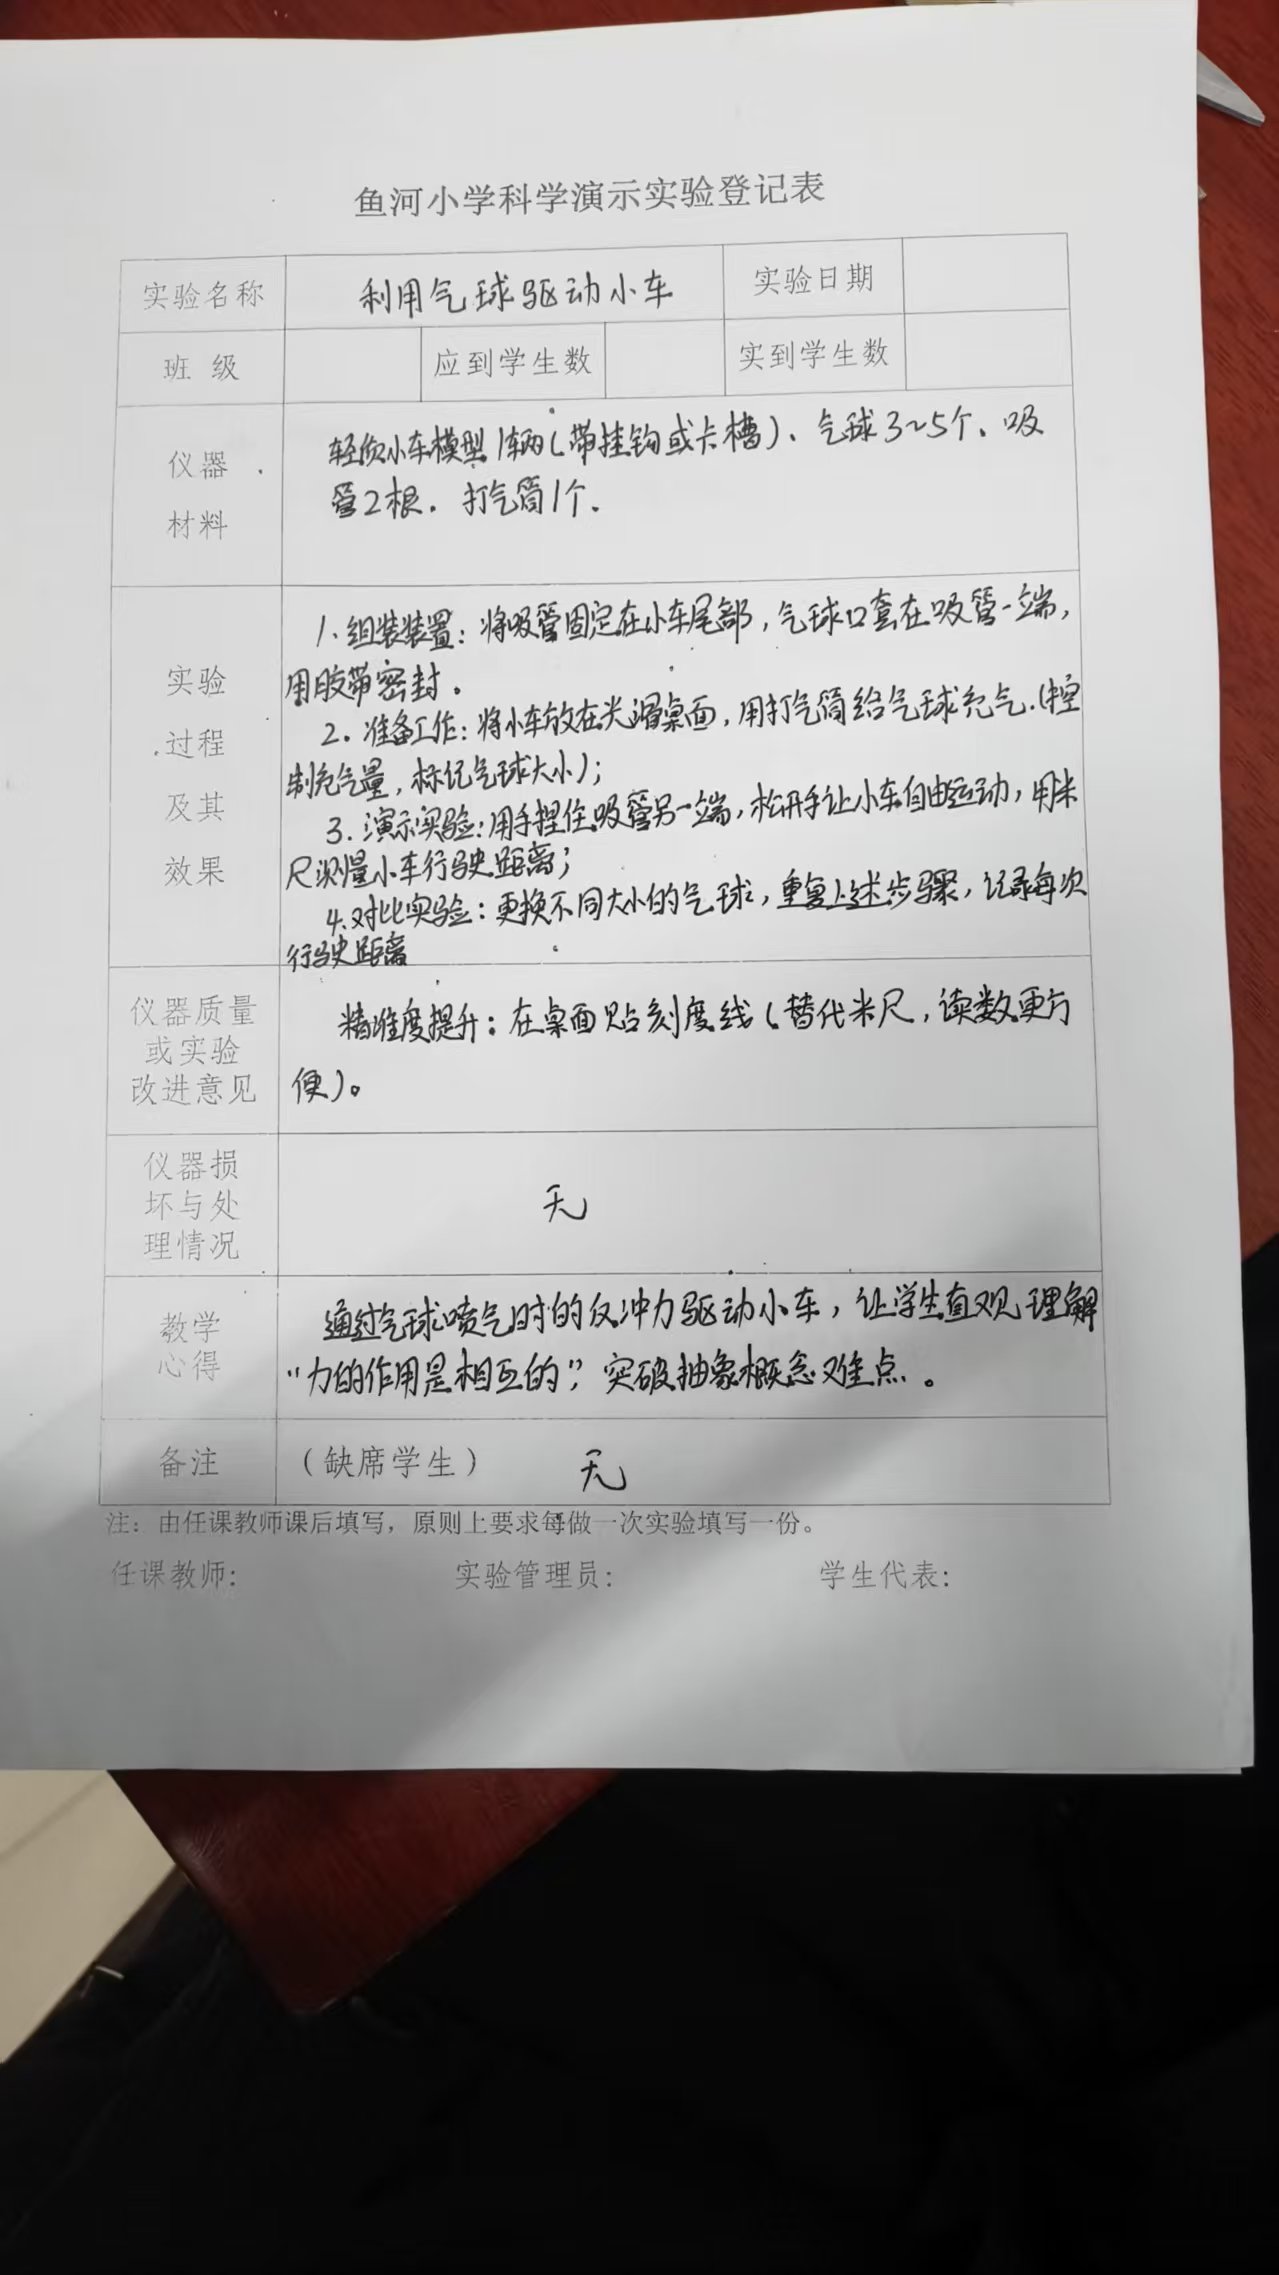 鱼河小学科学演示实验登记表
实验名称 利用气球驱动小车 实验日期
班 级 应到学生数 实到学生数
仪器
材料
轻质小车模型1辆(带挂钩或卡槽)、气球3~5个、吸
管2根.打气筒1个.
实验
过程
及其
效果
1.组装装置:将吸管固定在小车尾部,气球口套在吸管一端,
用胶带密封。
2.准备工作:将小车放在光滑桌面,用打气筒给气球充气.(控
制充气量,标记气球大小);
3.演示实验:用手捏住吸管另一端,松开手让小车自由运动,用米
尺测量小车行驶距离;
4.对比实验:更换不同大小的气球,重复上述步骤,记录每次
行驶距离
仪器质量
或实验
改进意见
精准度提升:在桌面贴刻度线(替代米尺,读数更方
便)。
仪器损
坏与处
理情况
无
教学
心得
通过气球喷气时的反冲力驱动小车,让学生直观理解
“力的作用是相互的”,突破抽象概念难点。
备注 (缺席学生) 无
注:由任课教师课后填写,原则上要求每做一次实验填写一份。
任课教师: 实验管理员: 学生代表: